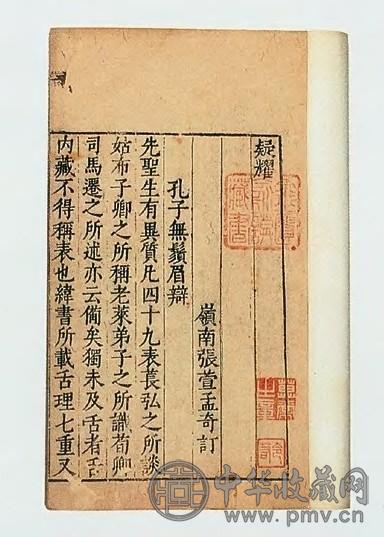 疑耀
嶺南張萱孟奇訂
孔子無鬚眉辯
先聖生有異質凡四十九表萇弘之所談
姑布子卿之所稱老萊弟子之所識荀卿
司馬遷之所述亦云偹矣獨未及舌者舌
內藏不得稱表也緯書所載舌理七重又
藏書
中华收藏网
www.pmv.cn